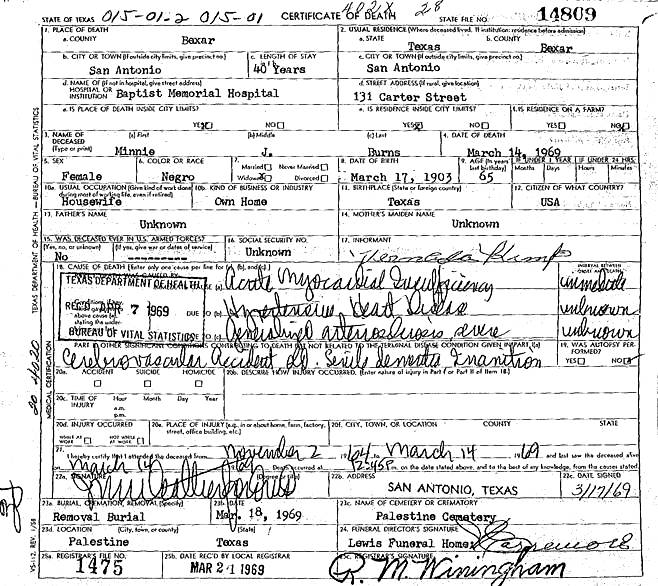 STATE OF TEXAS 015-01-2 015-01 CERTIFICATE OF DEATH 28 STATE FILE NO. 14809
1. PLACE OF DEATH
a. COUNTY Bexar
2. USUAL RESIDENCE (Where deceased lived. If institution: residence before admission)
a. STATE Texas b. COUNTY Bexar
b. CITY OR TOWN (If outside city limits, give precinct no.) San Antonio
c. LENGTH OF STAY 40 Years
c. CITY OR TOWN (If outside city limits, give precinct no.) San Antonio
d. NAME OF (If not in hospital, give street address) HOSPITAL OR INSTITUTION Baptist Memorial Hospital
d. STREET ADDRESS (If rural, give location) 131 Carter Street
e. IS PLACE OF DEATH INSIDE CITY LIMITS? YES X NO
e. IS RESIDENCE INSIDE CITY LIMITS? YES X NO
f. IS RESIDENCE ON A FARM? YES NO X
3. NAME OF DECEASED (Type or print) (a) First Minnie (b) Middle J. (c) Last Burns
4. DATE OF DEATH March 14, 1969
5. SEX Female
6. COLOR OR RACE Negro
7. Married Never Married Widowed X Divorced
8. DATE OF BIRTH March 17, 1903
9. AGE (In years last birthday) 65
IF UNDER 1 YEAR Months Days
IF UNDER 24 HRS. Hours Min.
10a. USUAL OCCUPATION (Give kind of work done during most of working life, even if retired) Housewife
10b. KIND OF BUSINESS OR INDUSTRY Own Home
11. BIRTHPLACE (State or foreign country) Texas
12. CITIZEN OF WHAT COUNTRY? USA
13. FATHER'S NAME Unknown
14. MOTHER'S MAIDEN NAME Unknown
15. WAS DECEASED EVER IN U.S. ARMED FORCES? (Yes, no, or unknown) (If yes, give war or dates of service) No --------
16. SOCIAL SECURITY NO. Unknown
17. INFORMANT
18. CAUSE OF DEATH [Enter only one cause per line for (a), (b), and (c).]
INTERVAL BETWEEN ONSET AND DEATH
TEXAS DEPARTMENT OF HEALTH
REC'D APR 7 1969
BUREAU OF VITAL STATISTICS
(a) Acute Myocardial Insufficiency immediate
DUE TO (b) Hypertensive Heart Disease unknown
DUE TO (c) Generalized arteriosclerosis, severe unknown
PART II OTHER SIGNIFICANT CONDITIONS CONTRIBUTING TO DEATH BUT NOT RELATED TO THE TERMINAL DISEASE CONDITION GIVEN IN PART I(a)
Cerebrovascular Accident old, Senile dementia Inanition
19. WAS AUTOPSY PERFORMED? YES NO
20a. ACCIDENT SUICIDE HOMICIDE
20b. DESCRIBE HOW INJURY OCCURRED. (Enter nature of injury in Part I or Part II of item 18.)
20c. TIME OF INJURY Hour Month Day Year
a.m.
p.m.
20d. INJURY OCCURRED WHILE AT WORK NOT WHILE AT WORK
20e. PLACE OF INJURY (e.g., in or about home, farm, factory, street, office building, etc.)
20f. CITY, TOWN, OR LOCATION COUNTY STATE
21. I hereby certify that I attended the deceased from November 2 1964 to March 14 1969 and last saw the deceased alive
March 14 Death occurred at 12:45P m, on the date stated above, and to the best of my knowledge, from the causes stated.
22a. SIGNATURE (Degree or title)
22b. ADDRESS SAN ANTONIO, TEXAS
22c. DATE SIGNED 3/17/69
23a. BURIAL, CREMATION, REMOVAL (Specify) Removal Burial
23b. DATE Mar. 18, 1969
23c. NAME OF CEMETERY OR CREMATORY Palestine Cemetery
23d. LOCATION (City, town, or county) Palestine (State) Texas
24. FUNERAL DIRECTOR'S SIGNATURE Lewis Funeral Home
25a. REGISTRAR'S FILE NO. 1475
25b. DATE REC'D BY LOCAL REGISTRAR MAR 21 1969
25c. REGISTRAR'S SIGNATURE R. M. Winingham
TEXAS DEPARTMENT OF HEALTH — BUREAU OF VITAL STATISTICS
MEDICAL CERTIFICATION
VS-112, REV. 1/58